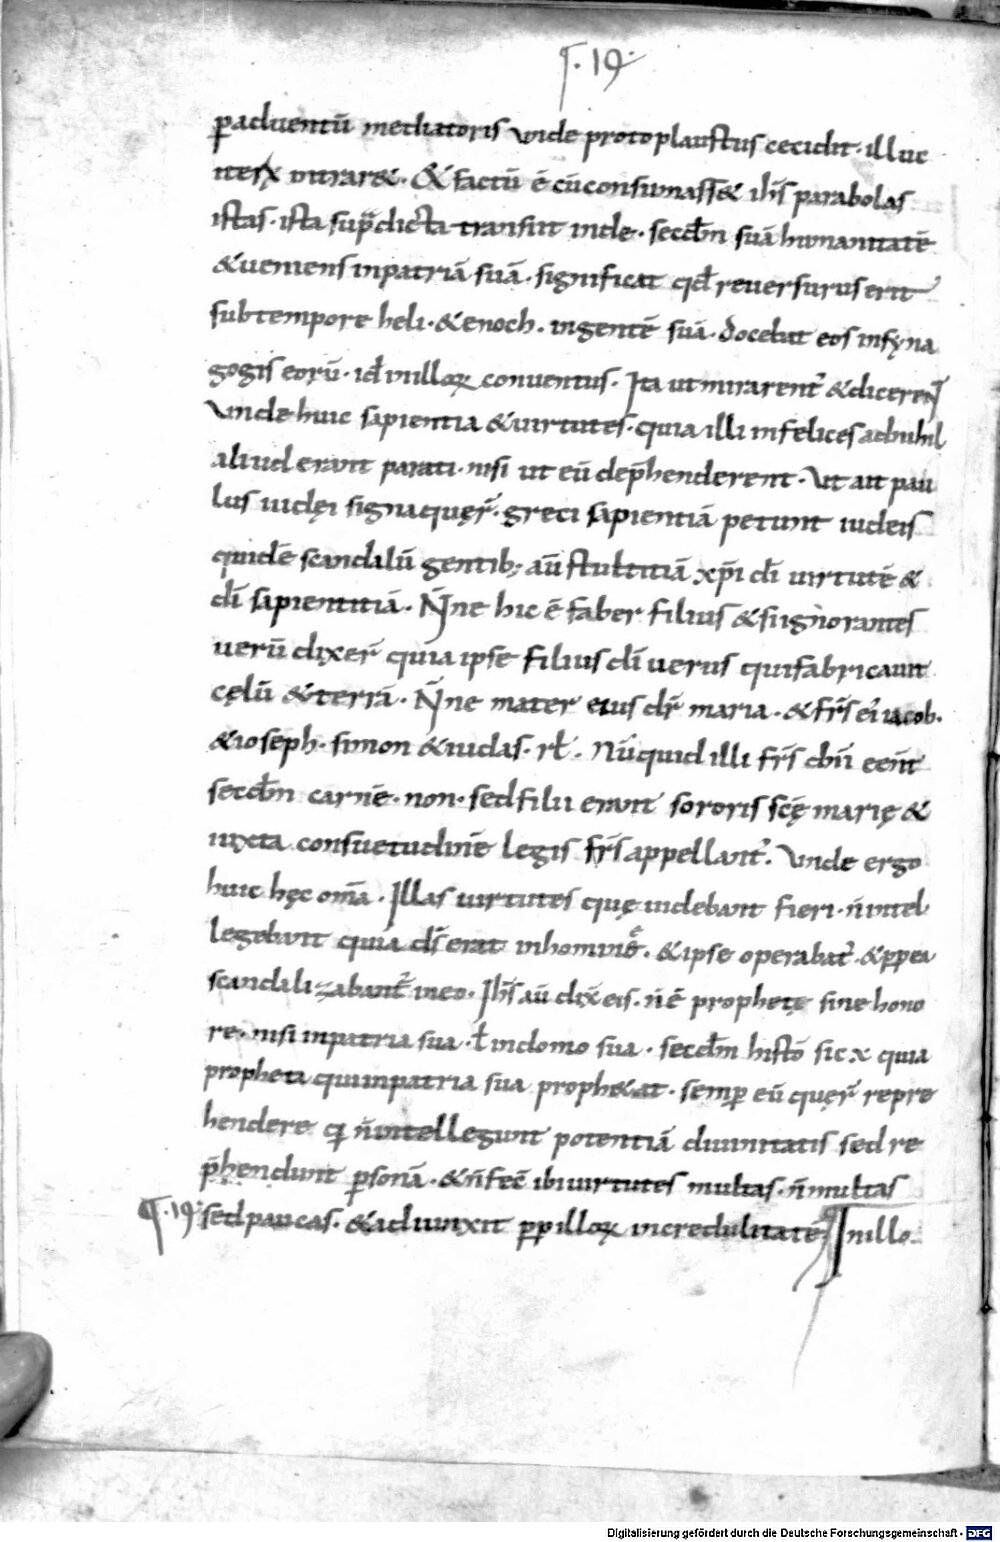 ¶. 19.
ꝑaduentū mediatoris unde protoplaustus cecidit· illuc
iterꝝ intrar&· & factū ē cū consumass& ih̄s parabolas
istas· ista sup̄dicta transiit inde· secd̄m suā humanitatē
& ueniens inpatriā suā· significat qd̄ reuersurus erit
subtempore heli· & enoch· ingentē suā· docebat eos insyna
gogis eorū· id inilloꝝ conuentus· Ita ut mirarent̄ & dicerent̄
Unde huic sapientia & uirtutes· quia illi infelices adnihil
aliud erant parati· nisi ut eū dep̄henderent· Ut ait pau
lus iudęi signa quęr̄· greci sapientiā petunt iudeis
quidē scandalū gentib; aū stultitiā xp̄i dī uirtutē &
dī sapientitiā· N̄ne hic ē faber filius & si ignorantes
uerū dixer̄ quia ipse filius dī uerus qui fabricauit
cęlū & terrā· N̄ne mater eius dr̄ maria· & fr̄s ei iacob·
& ioseph· simon & iudas· rl̄· Nūquid illi fr̄s dn̄i eēnt
secd̄m carnē· non· sed filii erant sororis sc̄ę marię &
iuxta consuetudinē legis fr̄s appellant̄· Unde ergo
huic hęc om̄a· Illas uirtutes quę uidebant fieri· n̄ intel
legebant quia ds̄ erat inhominē· & ipse operabat̄· & ꝓpea
scandalizabant̄ ineo· Ih̄s aū dix̄ eis· n̄ ē propheta sine hono
re· nisi inpatria sua· ł indomo sua· secd̄m histō sic x̄ quia
propheta qui inpatria sua proph&at· semꝑ eū quęr̄ repre
hendere q̄ n̄ intellegunt potentiā diuinitatis sed re
p̄hendunt ꝑsonā· & n̄ fec̄ ibi uirtutes multas· n̄ multas
¶. 19. sed paucas· & adiunxit ꝓp illoꝝ incredulitatē Inillo
Digitalisierung gefördert durch die Deutsche Forschungsgemeinschaft - DFG